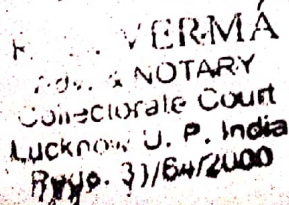 VERMA
Adv. & NOTARY
Collectorate Court
Lucknow U. P. India
31/64/2000